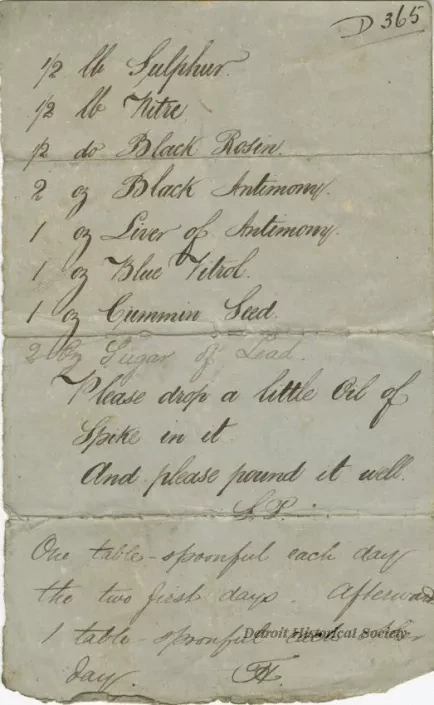 D 365
1/2 lb Sulphur.
1/2 lb Nitre
1/2 do Black Rosin.
2 oz Black Antimony.
1 oz Liver of Antimony.
1 oz Blue Vitrol.
1 oz Cummin Seed.
2 oz Sugar of Lead.
Please drop a little Oil of
Spike in it
And please pound it well.
S. P.
One table-spoonful each day
the two first days. Afterward
1 table-spoonful
Detroit Historical Society
day.